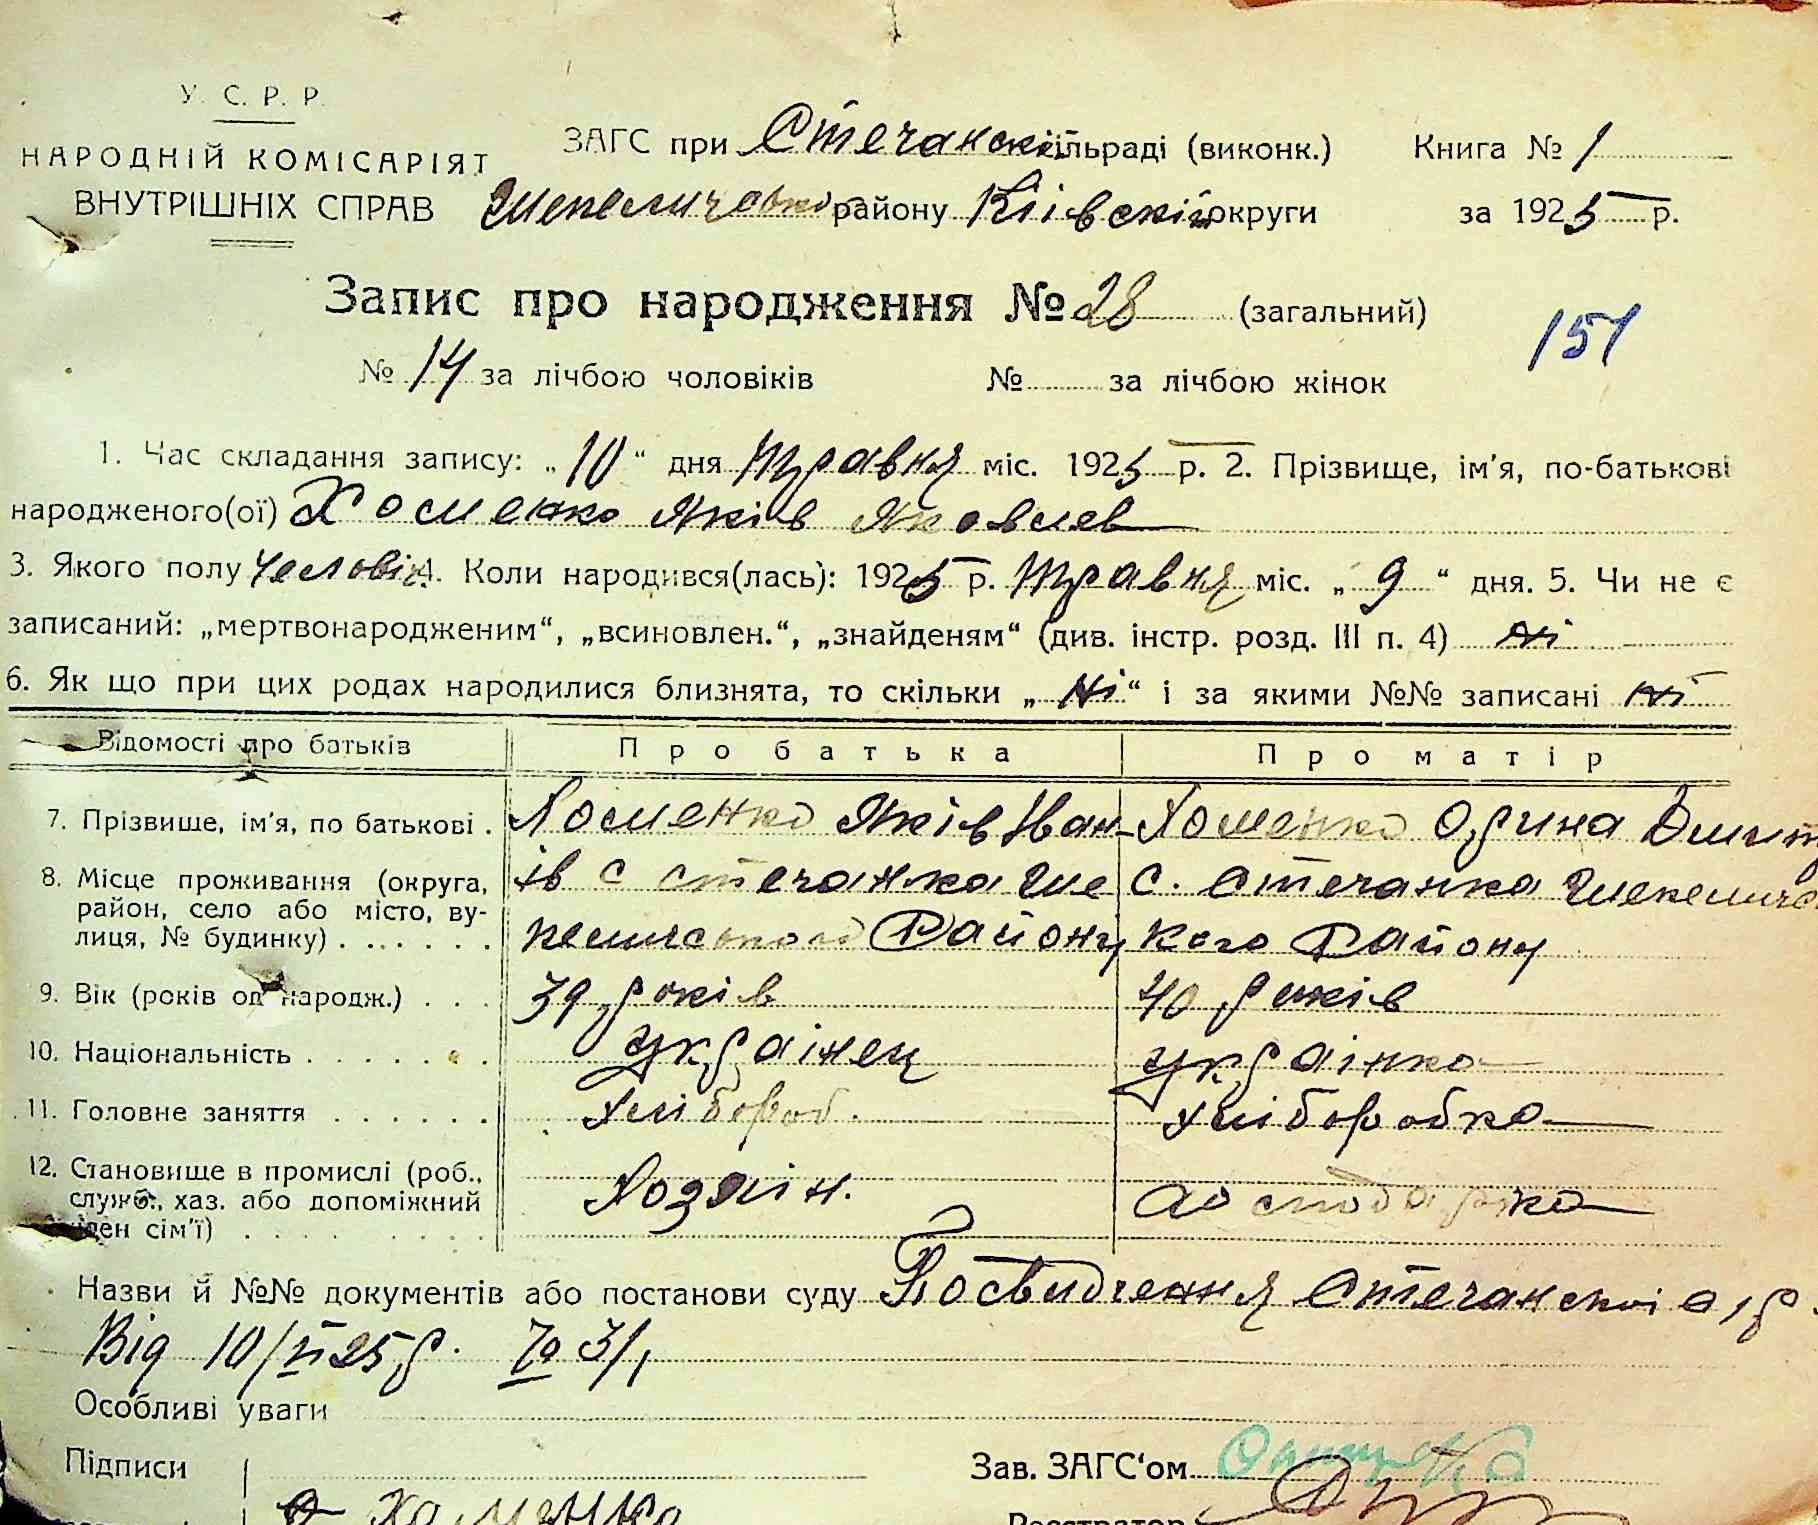 У. С. Р. Р.
НАРОДНІЙ КОМІСАРІЯТ
ВНУТРІШНІХ СПРАВ
ЗАГС при Стечанскій сільраді (виконк.) Книга № 1
Шепеличського району Кіівскій округи за 1925 р.
Запис про народження № 28 (загальний)
151
№ 14 за лічбою чоловіків № за лічбою жінок
1. Час складання запису: „10“ дня Травня міс. 1925 р. 2. Прізвище, ім'я, по-батькові
народженого(ої) Хоменко Яків Яковлев
3. Якого полу Человік 4. Коли народився(лась): 1925 р. Травня міс. „9“ дня. 5. Чи не є
записаний: „мертвонародженим“, „всиновлен.“, „знайденям“ (див. інстр. розд. III п. 4) ні
6. Як що при цих родах народилися близнята, то скільки „ні“ і за якими №№ записані ні
Відомості про батьків Про батька Про матір
7. Прізвище, ім'я, по батькові . Хоменко Яків Іван- Хоменко Орина Дмит
8. Місце проживання (округа, ів с стечанка Ше с. Стечанка Шепеличс
район, село або місто, ву-
лиця, № будинку) . . . . . . пеличського Району кого Району
9. Вік (років од народж.) . . . 39 років 40 років
10. Національність . . . . . . . українец українка
11. Головне заняття . . . . . . Хлібороб. Хліборобка
12. Становище в промислі (роб.,
служб., хаз. або допоміжний Хозяін. Господарка
член сім'ї) . . . . . . . . .
Назви й №№ документів або постанови суду Посвидчення Стечанскоі с/р
Від 10/VI 25 р. № 31,
Особливі уваги
Підписи Зав. ЗАГС‘ом
Хаменко Реєстратор